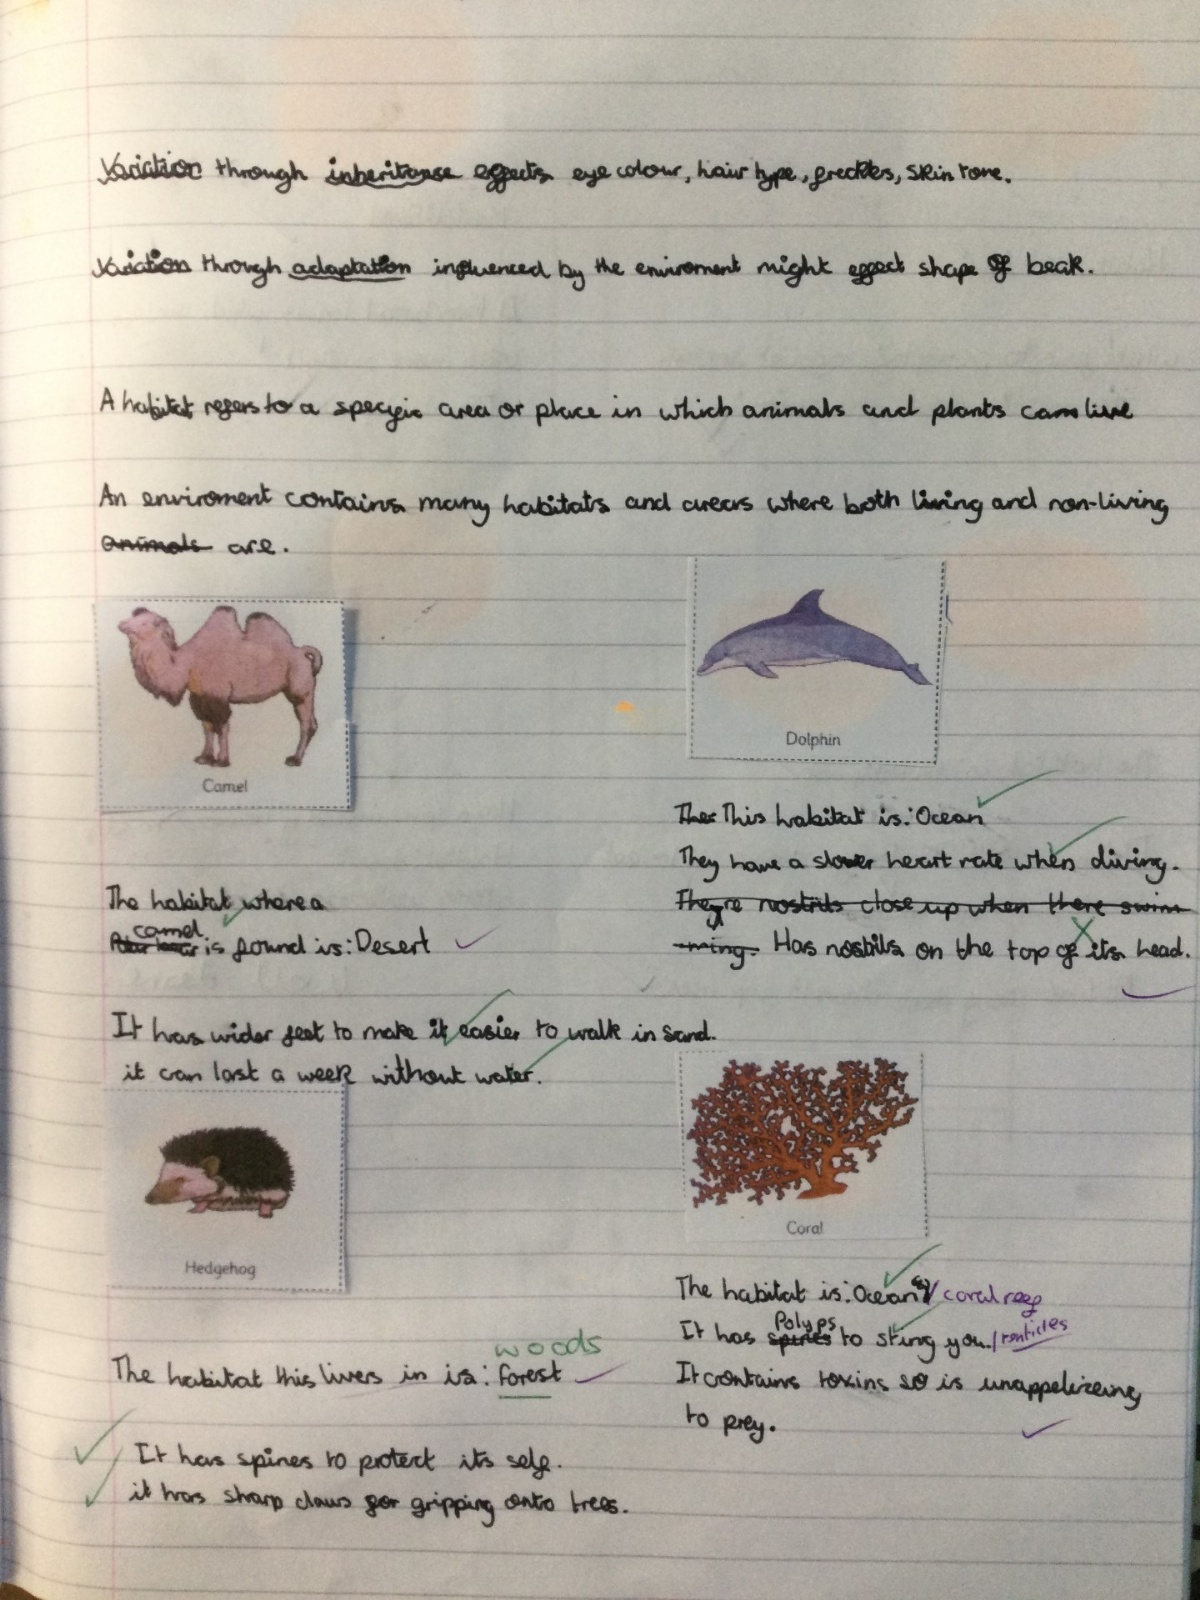 Variation through inheritance effects eye colour, hair type, freckles, skin tone.
Variation through adaptation influenced by the enviroment might effect shape of beak.
A habitat refers to a specific area or place in which animals and plants can live
An enviroment contains many habitats and arears where both living and non-living
animals are.
Camel
Dolphin
The habitat where a
camel
is found is: Desert
It has wider feet to make it easier to walk in sand.
it can last a week without water.
Ther This habitat is: Ocean
They have a slower heart rate when diving.
They're nostrils close up when there swim
-ming. Has nostrils on the top of its head.
Hedgehog
woods
The habitat this lives in is: forest
It has spines to protect its self.
it has sharp claws for gripping onto trees.
Coral
The habitat is: Ocean / coral reef
Polyps
It has spines to sting you. / tenticles
It contains toxins so is unappetizeing
to prey.